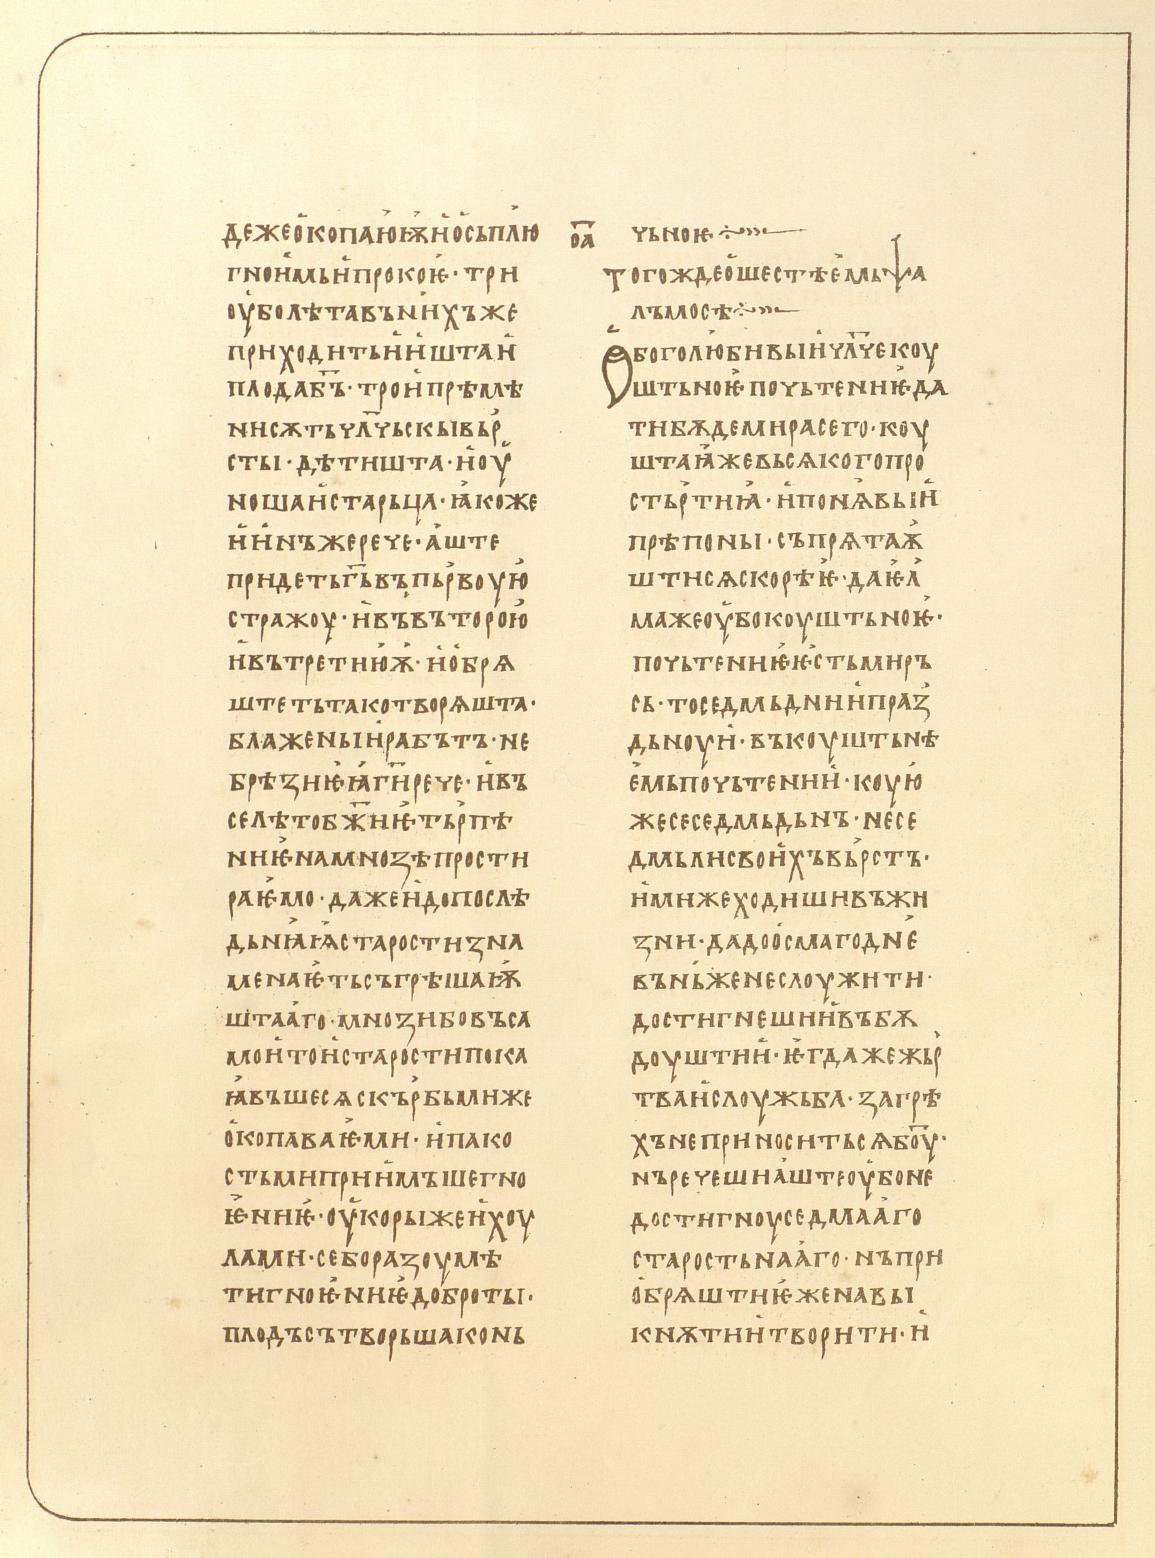 дежео҅копаꙗ҅ѭи҅о҅сьплю҅
гнои҅мьи҅прокоѥ҅· три
оу҅болѣтавъни҅хъже
приходитьи҅и҅штаи҅
плодаб҃ъ· трои҅прѣмѣ
нисѫтьчл҃чьскывьр
сты· дѣтишта· и҅оу҅
ношаи҅старьца· ꙗ҅коже
и҅и҅нъжерече· а҅ште
придетьг҃ьвъпьрвоую҅
стражоу· и҅въвъторою҅
и҅вътретиюѭ҅· и҅о҅бря
штетьтакотворѧшта·
блаженыи҅рабътъ· не
брѣзниѥ҅ꙗ҅г҃и҅рече· и҅въ
селѣтобж҃иѥ҅· тьрпѣ
ниѥ҅намнозѣпрости
раѥ҅мо· дажеи҅допослѣ
дьнꙗ҅ѩ҅старостизна
менаѥ҅тьсъгрѣшаѭ҅
штаа҅го· мнозибовъса
мои҅тои҅старостипока
ꙗ҅въшесѧскърбьмиже
о҅копаваѥ҅ми· и҅пако
стьмиприи҅мъшегно
ѥ҅ниѥ҅· оу҅корыжеи҅хоу
лами· себоразоумѣ
тигноѥ҅ниѥ҅доброты·
плодъсътворьшаконь
о҃а
чьноѥ·
тогождео҅шестѣе҅мьѱа
лъмосѣ
О҅боголюбивыи҅чл҃чекоу
штьноѥ҅почьтениѥ҅да
тибѫдемирасего· коу
штаꙗ҅жевьсѧкогопро
стьртиꙗ҅· и҅понѧвыи҅
прѣпоны· съпрѧтаѫ҅
штисѧскорѣѥ҅· даѥ҅л҅
мажеоу҅бокоуштьноѥ҅·
почьтениѥ҅ѥ҅стьмиръ
сь· тоседмьднии҅праз
дьноуи҅· въкоуштьнѣ
е҅мьпочьтении҅· коую҅
жесеседмьдьнъ· несе
дмьлисвои҅хъвьрстъ·
и҅мижеходишивъжи
зни· дадоо҅смагодне҅
въньженеслоужити·
достигнешии҅въбѫ
доуштии҅· ѥ҅гдажежьр
тваи҅слоужьба· загрѣ
хънеприноситьсѧб҃оу·
нъречешиа҅штеоу҅боне
достигноуседмаа҅го
старостьнаа҅го· нъпри
о҅брѧштиѥ҅женавы
кнѫтии҅творити· и҅